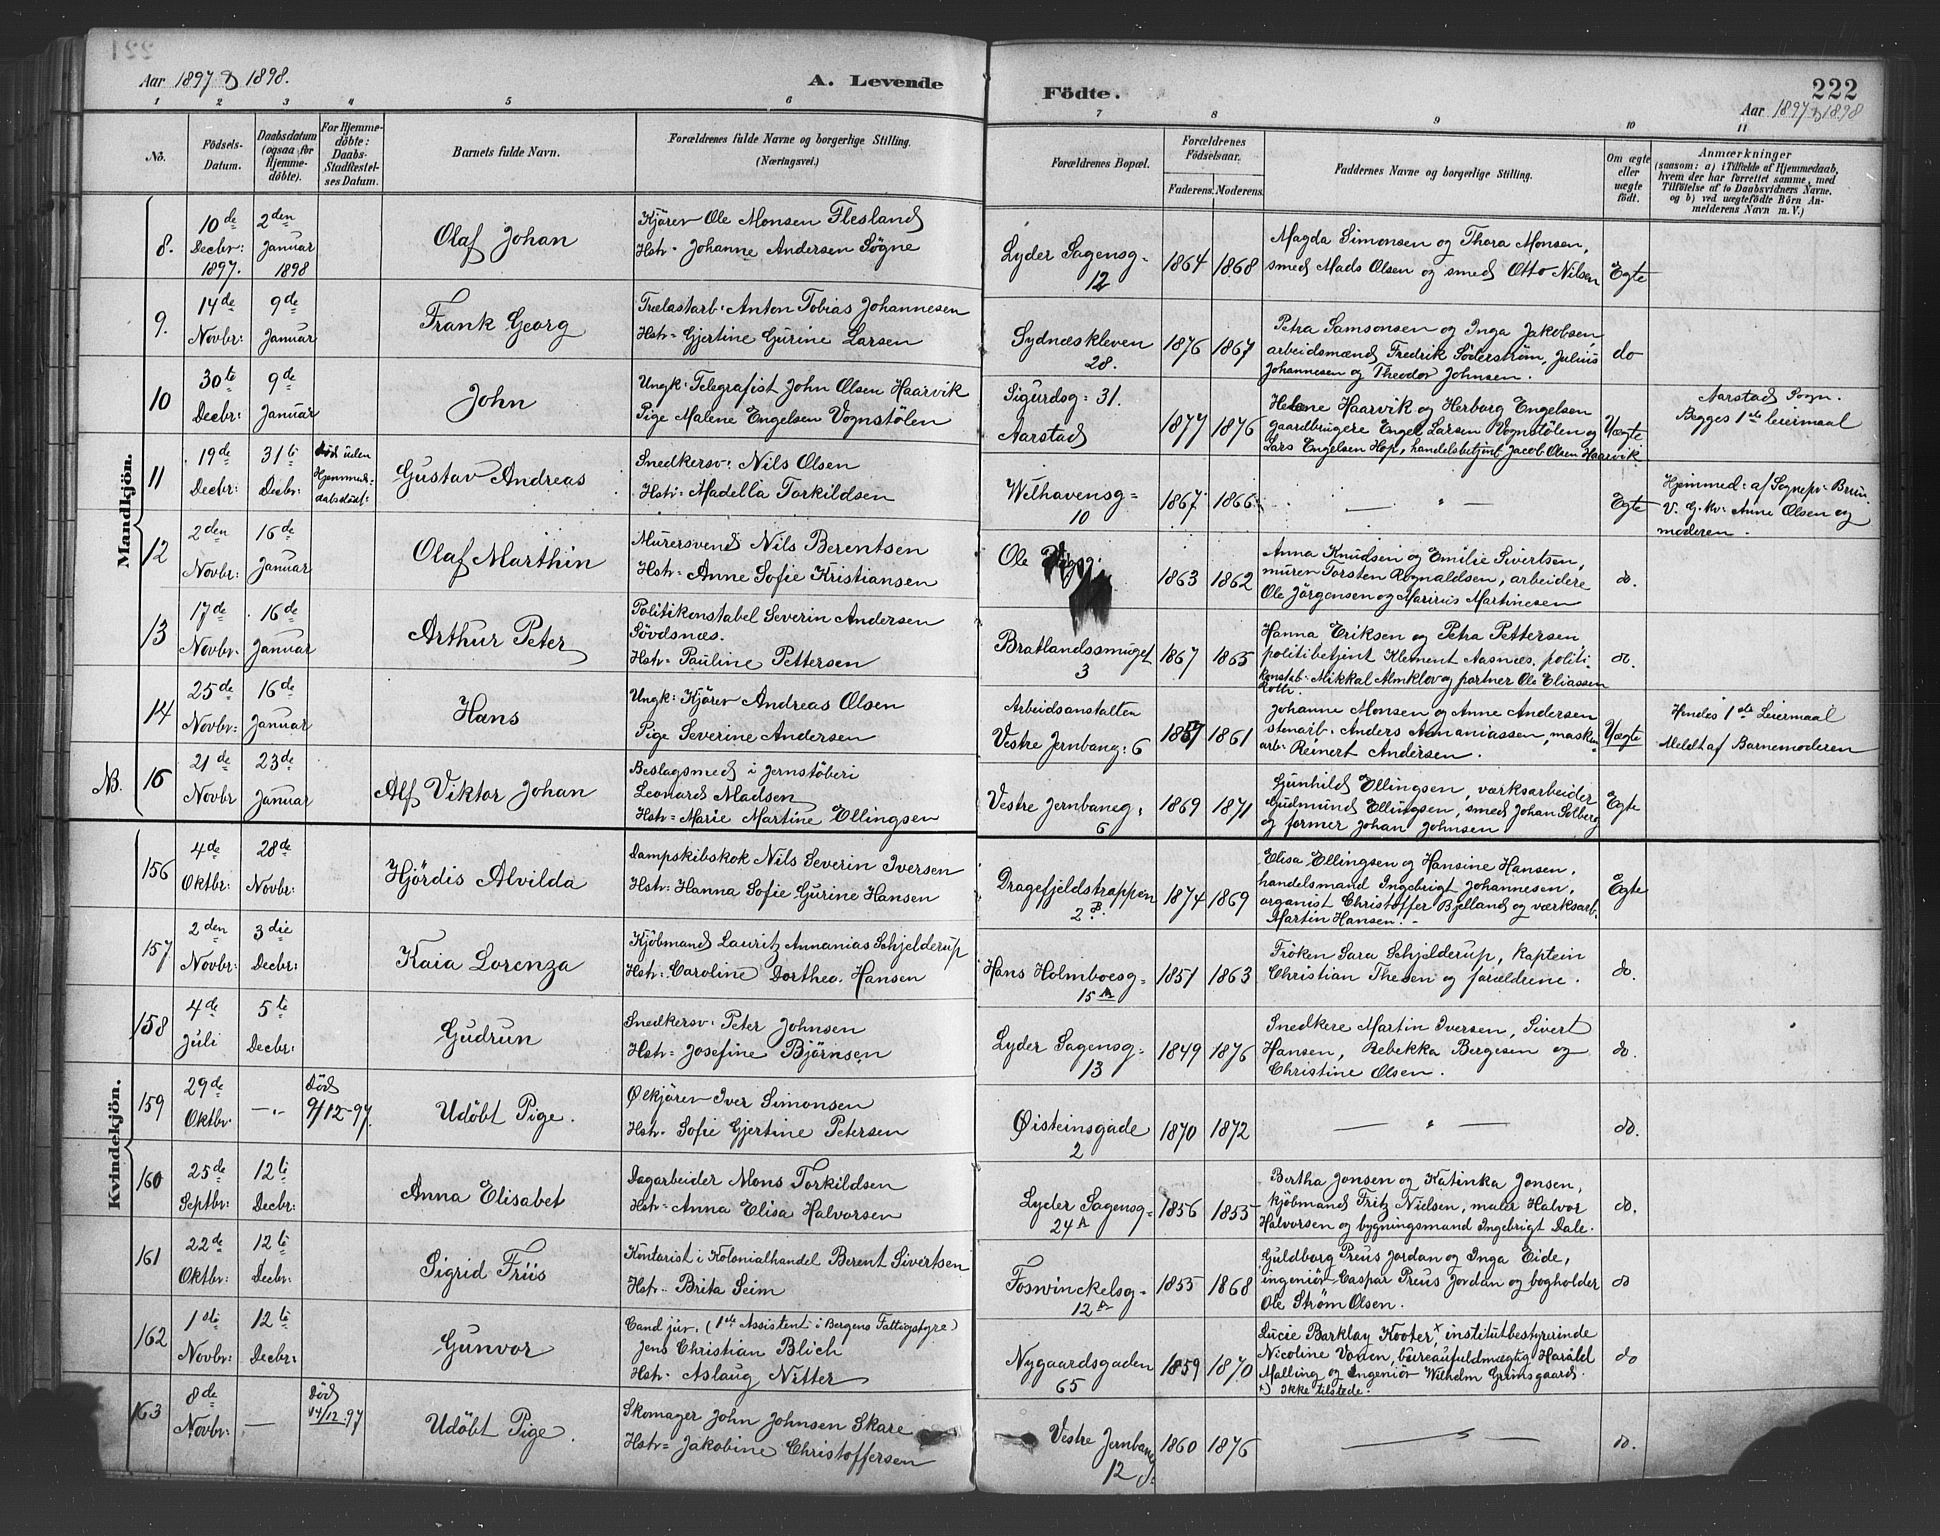 Aar 1897 & 1898.
A. Levende
Födte.
222
Aar 1897 & 1898
1 2 3 4 5 6 7 8 9 10 11
No.
Födsels-Datum.
Daabsdatum (ogsaa for Hjemme-döbte).
For Hjemme-döbte: Daabs-Stadfæstel-ses Datum.
Barnets fulde Navn.
Forældrenes fulde Navne og borgerlige Stilling.
(Næringsvei.)
Forældrenes Bopæl.
Forældrenes Födselsaar.
Faderens. Moderens.
Faddernes Navne og borgerlige Stilling.
Om ægte eller uægte födt.
Anmærkninger
(saasom: a) i Tilfælde af Hjemmedaab,
hvem der har forrettet samme, med
Tilföielse af to Daabsvidners Navne,
og b) ved uægtefödte Börn An-
melderens Navn m. V.)
Mandkjön.
8. 10de Decbr: 1897. 2den Januar 1898
Olaf Johan
Kjörer Ole Monsen Flesland
Hstr: Johanne Andersen Søgne
Lyder Sagensg: 12
1864 1868
Magda Simonsen og Thora Monsen,
smed Mads Olsen og smed Otto Nilsen
Egte
9. 14de Novbr: 9de Januar
Frank Georg
Trælastarb: Anton Tobias Johannesen
Hstr: Gjertine Gurine Larsen
Sydnæskleven 28.
1876 1867
Petra Samsonsen og Inga Jakobsen,
arbeidsmænd Fredrik Söderstrøm, Julius
Johannesen og Theodor Johnsen.
do
10 30te Decbr: 9de Januar
John
Ungk: Telegrafist John Olsen Haarvik
Pige Malene Engelsen Vognstølen
Sigurdsg: 31.
Aarstad
1877 1876
Helene Haarvik og Herborg Engelsen
gaardbrugere Engel Larsen Vognstølen og
Lars Engelsen Hop, handelsbetjent Jacob Olsen Haarvik
Uægte
Aarstad Sogn.
Begges 1ste leiermaal
11 19de Decbr: 31te Decbr:
Död uden
Hjemme-
daabsdöbt:
Gustav Andreas
Snedkersv: Nils Olsen
Hstr: Madella Torkildsen
Welhavensg: 10
1867 1866
Egte
Hjemmed: af Sognepr. Bruun
V. G. kv: Anne Olsen og
moderen.
12 2den Novbr: 16de Januar
Olaf Marthin
Murersvend Nils Berentsen
Hstr: Anne Sofie Kristiansen
Ole
1863 1862
Anna Knudsen og Emilie Sivertsen,
murer Torsten Rognaldsen, arbeidere
Ole Jörgensen og Marius Martinesen
do.
13 17de Novbr: 16de Januar
Arthur Peter
Politikonstabel Severin Andersen
Sövdsnæs.
Hstr: Pauline Pettersen
Bratlandssmuget 3
1867 1865
Hanna Eriksen og Petra Pettersen
politibetjent Klement Aasnæs, politi-
konstab. Mikkal Almklov og portner Ole Eliassen
Roth.
do.
14 25de Novbr: 16de Januar
Hans
Ungk: Kjörer Andreas Olsen
Pige Severine Andersen
Arbeidsanstalten
Vestre Jernbaneg: 6
1857 1861
Johanne Monsen og Anne Andersen
stenarb. Anders Annaniassen, maskin-
arb: Reinert Andersen.
Uægte
Hendes 1ste Leiermaal
Meldt af Barnemoderen
NB. 15 21de Novbr 23de Januar
Alf Viktor Johan
Beslagsmed i Jernstöberi
Leonard Madsen
Hstr: Marie Martine Ellingsen
Vestre Jernbaneg: 6
1869 1871
Gunhild Ellingsen, værksarbeider
Gudmund Ellingsen, smed Johan Solberg
og former Johan Johnsen
Egte
Kvindekjön.
156 4de Oktbr: 28de Novbr:
Hjördis Alvilda
Dampskibskok Nils Severin Iversen
Hstr: Hanna Sofie Gurine Hansen
Dragefjeldstrappen 2B.
1874 1869
Elisa Ellingsen og Hansine Hansen,
handelsmand Ingebrigt Johannesen,
organist Christoffer Bjelland og værksarb.
Martin Hansen.
Egte
157 2den Novbr: 3die Decbr:
Kaia Lorenza
Kjöbmand Lauritz Annanias Schjelderup
Hstr: Caroline Dorthea Hansen
Hans Holmboesg: 15A
1851 1863
Fröken Sara Schjelderup, kaptein
Christian Thesen og forældrene.
do.
158 4de Juli 5te Decbr:
Gudrun
Snedkersv: Peter Johnsen
Hstr: Josefine Björnsen
Lyder Sagensg: 13
1849 1876
Snedkere Martin Iversen, Sivert
Hansen, Rebekka Bergesen og
Christine Olsen.
do.
159 29de Oktbr: —"—
Död 9/12-97.
Udöbt Pige.
Ølkjörer Iver Simonsen
Hstr: Sofie Gjertine Petersen
Øisteinsgade 2
1870 1872
— " —
do.
160 25de Septbr: 12te Decbr:
Anna Elisabet
Dagarbeider Mons Torkildsen
Hstr: Anna Elisa Halvorsen
Lyder Sagensg: 24A
1856 1855
Bertha Jonsen og Katinka Jonsen,
kjöbmand Fritz Nielsen, maler Halvor
Halvorsen og bygningsmand Ingebrigt Dale.
do.
161 22de Oktbr: 12te Decbr:
Sigrid Friis
Kontorist i Kolonialhandel Berent Sivertsen
Hstr: Brita Seim
Foswinckelsg: 12A
1855 1868
Guldborg Preus Jordan og Inga Eide,
ingeniör Caspar Preus Jordan og bogholder
Ole Strøm Olsen.
do
162 1ste Novbr: 12te Decbr:
Gunvor
Cand jur. (1ste Assistent i Bergens Fattigstyre)
Jens Christian Blich
Hstr: Aslaug Nitter
Nygaardsgaden 65
1859 1870
Lucie Barklay Kooter,x institutbestyrerinde
Nicoline Vonen, bureaufuldmægtig Harald
Malling og Ingeniör Wilhelm Grimsgaard.
x) Ikke tilstede.
do
163 8de Novbr: —
Död 14/12-97
Udöbt Pige.
Skomager John Johnsen Skare
Hstr: Jakobine Christoffersen
Vestre Jernbaneg: 12
1860 1876
do.